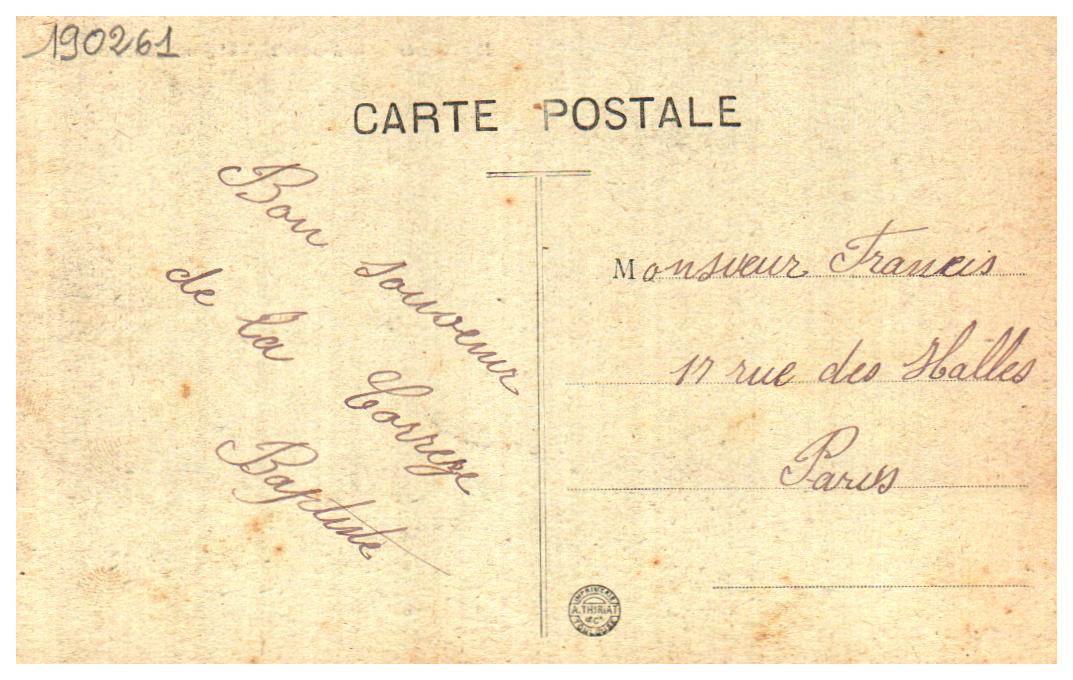 190261
CARTE POSTALE
Bon souvenir
de la Correze
Baptiste
Monsieur Francis
17 rue des Halles
Paris
IMPRIMERIE
A. THIRIAT
& Cie
TOULOUSE